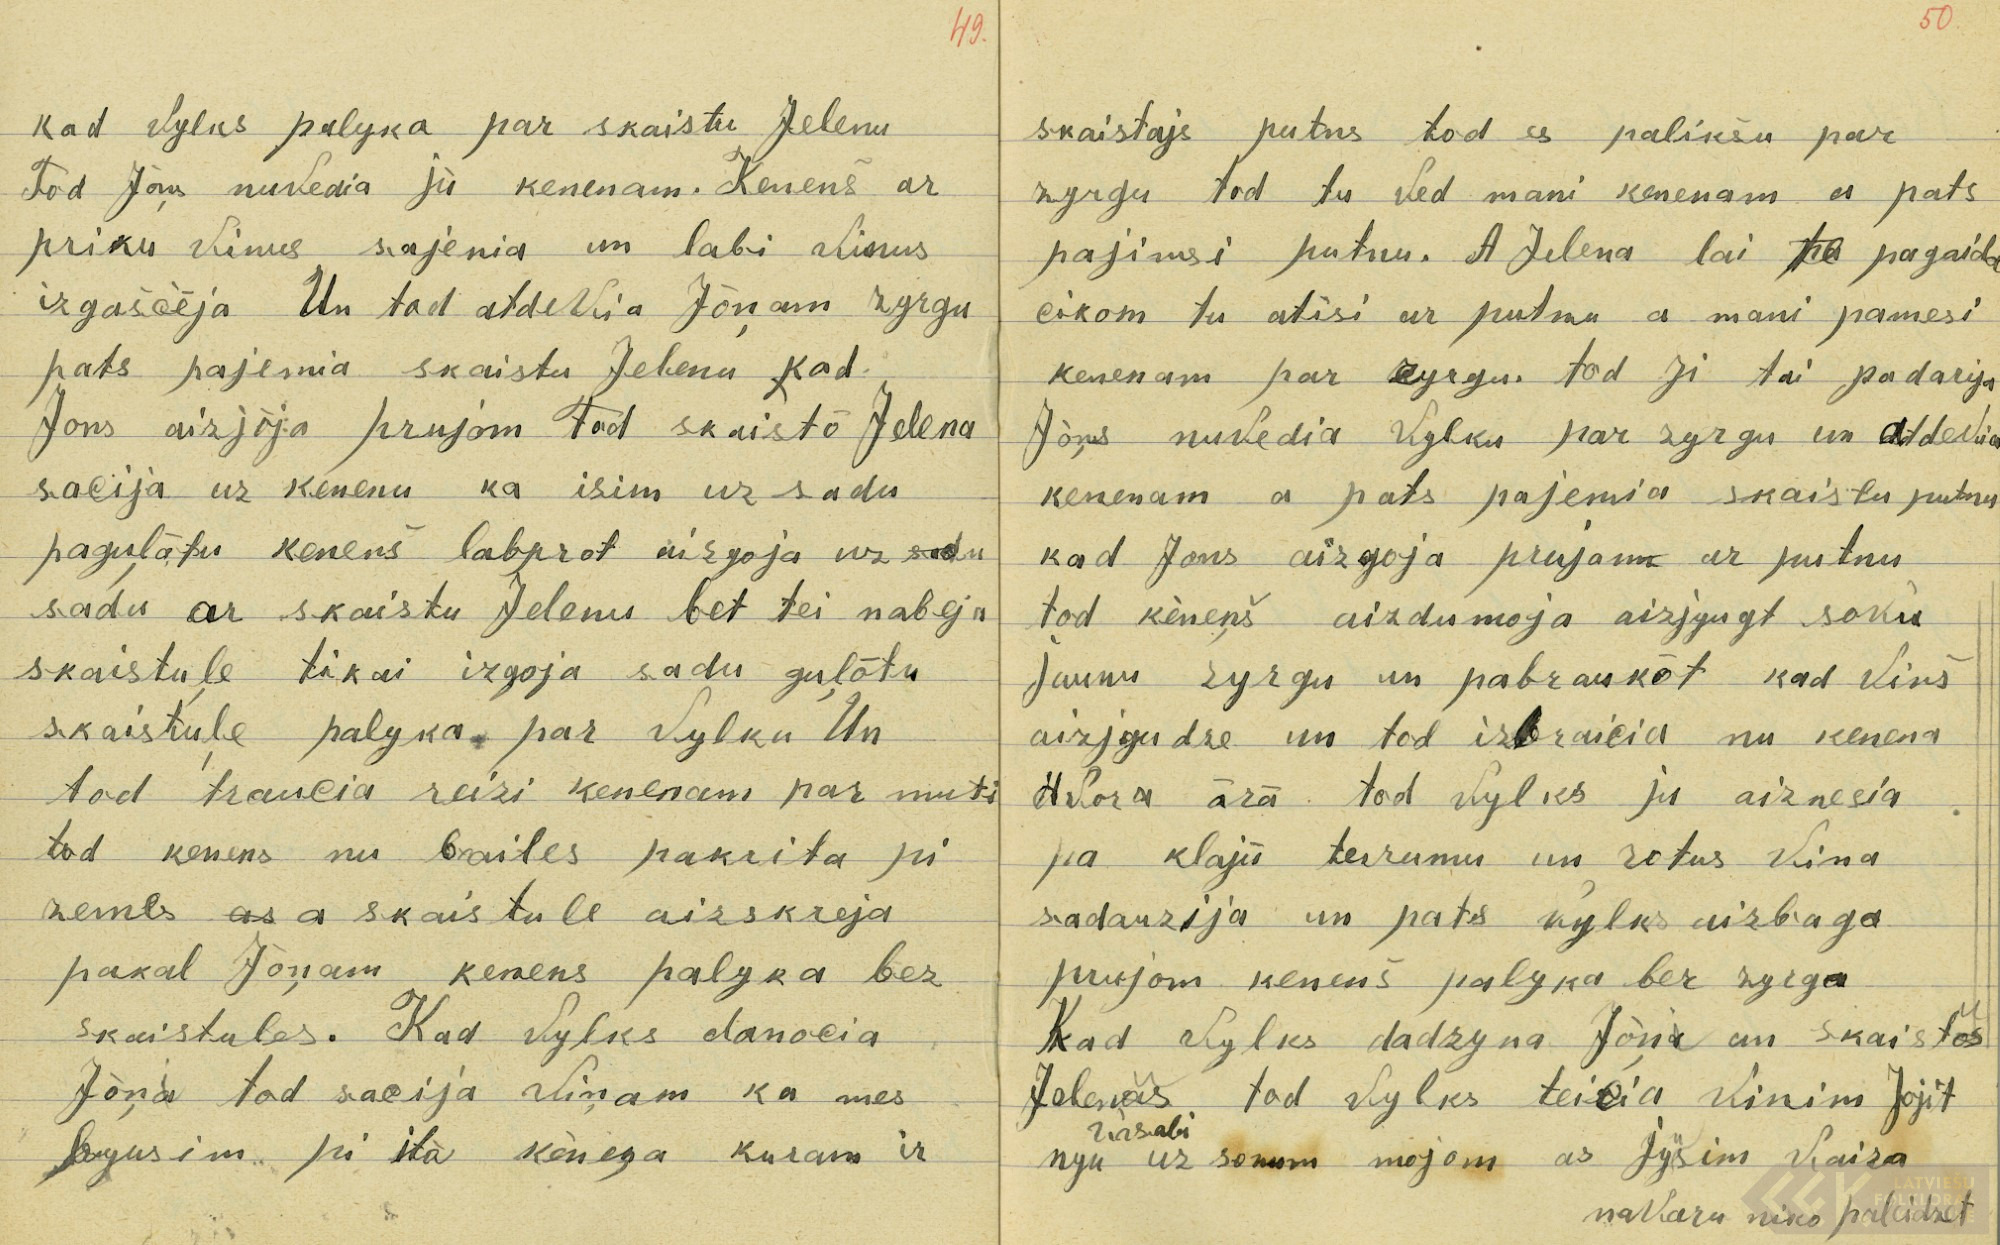 49.
kad vylks palyka par skaistu Jelenu
Tod Jōņs nuvedia jù kenenam. Kenenš ar
priku vinus sajenia un labi vinus
izgaščēja Un tod atdevia Jōņam zyrgu
pats pajemia skaistu Jelenu kad
Jons aizjōja prujom Tod skaistō Jelena
sacija uz kenenu ka isim uz sadu
paguļātu kenenš labprot aizgoja uz sadu
sadu ar skaistu Jelenu bet tei nabeja
skaistuļe tikai izgoja sadu guļōtu
skaistuļe palyka par vylku Un
tod traucia reizi kenenam par muti
tod kenens nu bailes pakrita pi
zemes as a skaistule aizskreja
pakal Jōņam kenens palyka bez
skaistules. Kad vylks danocia
Jōņa tod sacija viņam ka mes
bygusim pi itā kèneņa kuram ir
50.
skaistajs putns tod es palikšu par
zyrgu tod tu ved mani kenenam a pats
pajimsi putnu. A Jelena lai te pagaida
cikom tu atisi ar putnu a mani pamesi
kenenam par zyrgu. tod ji tai padarija
Jōņs nuvedia vylku par zyrgu un atdevia
kenenam a pats pajemia skaistu putnu
kad Jons aizgoja prujam ar putnu
tod kèneņš aizdumoja aizjyugt sovù
jaunu zyrgu un pabraukōt kad vinš
aizjyudze un tod izbraicia nu kenena
dvora ārā tod vylks ju aiznesia
pa klajū teirumu un rotus vina
sadauzija un pats vylks aizbaga
prujom kenenš palyka bez zyrga
Kad vylks dadzyna Jōņa un skaistos
Jelenas tod vylks teicia vinim Jojit
zirsabi
nyu uz sonum mojom as jyusim vaira
navaru niko paleidzet
LATVIEŠU
FOLKLORAS